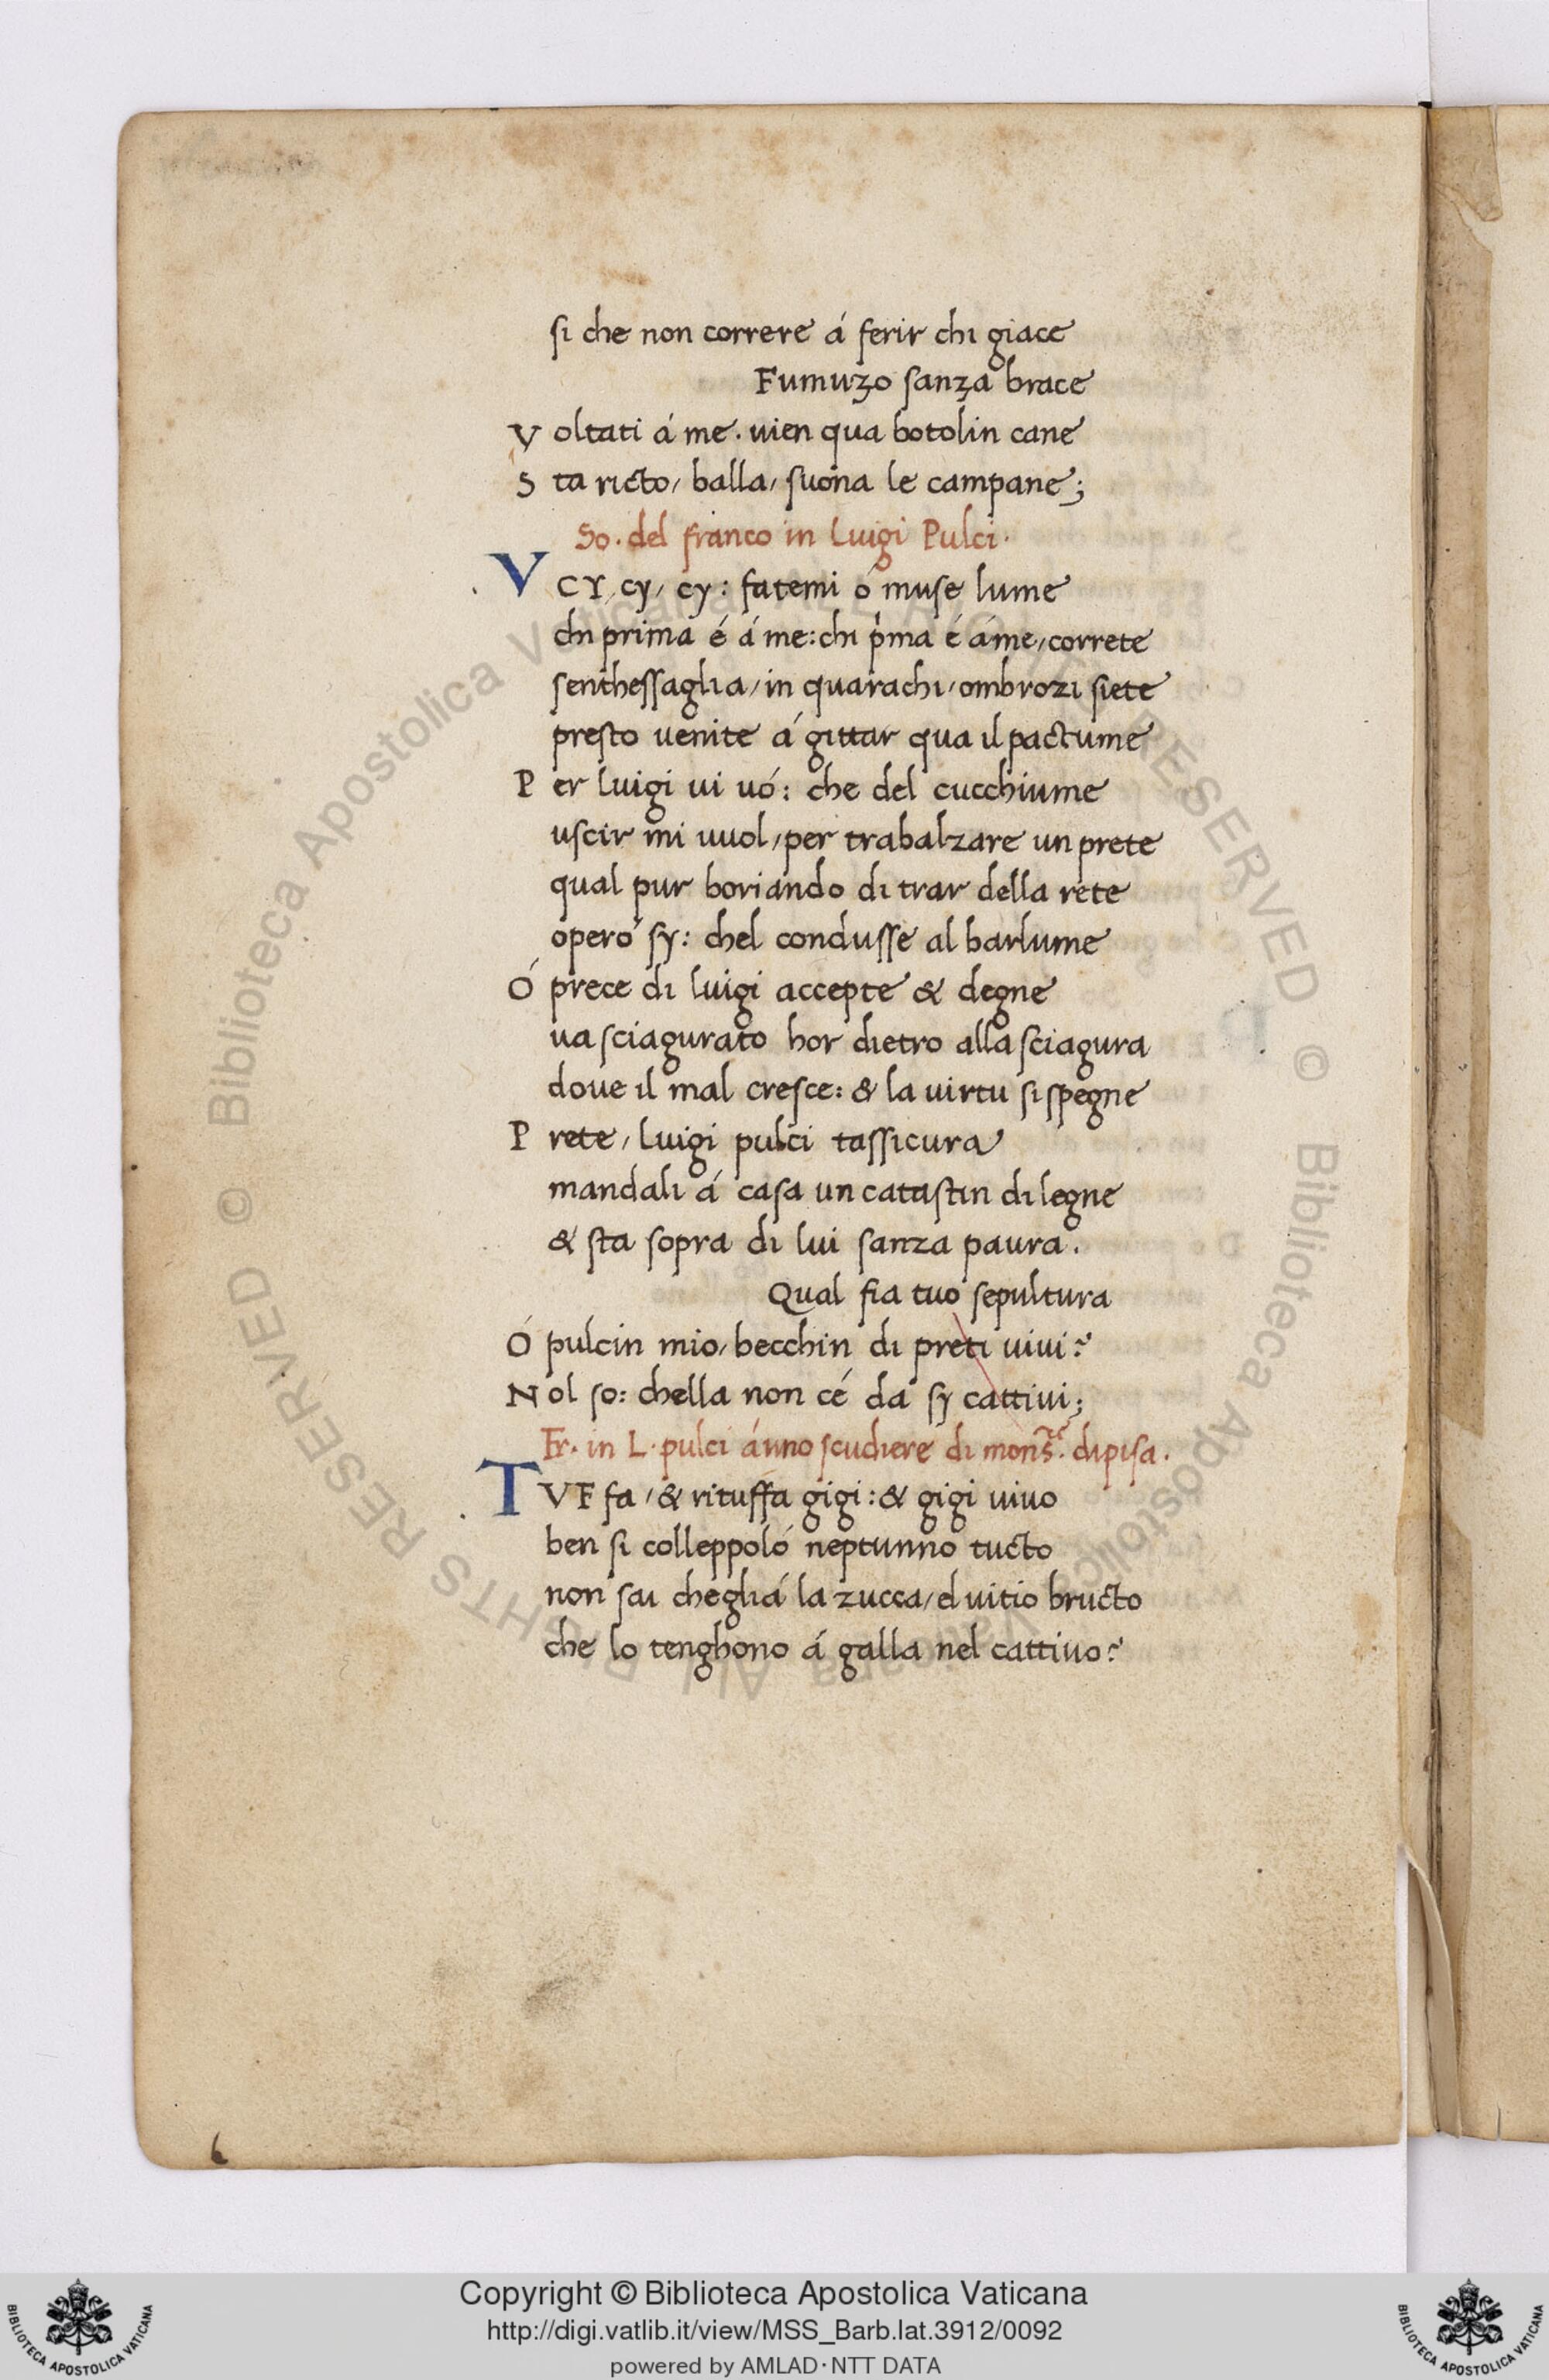 si che non correre á ferir chi giace
Fumuzo sanza brace
V oltati á me. uien qua botolin cane
S ta ricto, balla, suona le campane;
So. del franco in Luigi Pulci.
V CY, cy, cy: fatemi ó muse lume
chi prima é á me: chi p̍ma é á me, correte
senthessaglia, in quarachi, ombrozi siete
presto uenite á gittar qua il pactume
P er luigi ui uó: che del cucchiume
uscir mi uuol, per trabalzare un prete
qual pur boriando di trar della rete
operó sy: chel condusse al barlume
Ó prece di luigi accepte & degne
ua sciagurato hor dietro alla sciagura
doue il mal cresce: & la uirtu si spegne
P rete, luigi pulci tassicura
mandali á casa un catastin di legne
& sta sopra di lui sanza paura.
Qual fia tuo sepultura
Ó pulcin mio, becchin di preti uiui?
N ol so: chella non cé da sy cattiui;
Fr. in L. pulci áuno scudiere di mons.re dipisa.
T VF fa, & rituffa gigi: & gigi uiuo
ben si colleppoló neptunno tucto
non sai chegliá la zucca, d uitio bructo
che lo tenghono á galla nel cattiuo?
Biblioteca Apostolica Vaticana ALL RIGHTS RESERVED ©
Copyright © Biblioteca Apostolica Vaticana
http://digi.vatlib.it/view/MSS_Barb.lat.3912/0092
powered by AMLAD·NTT DATA
BIBLIOTECA APOSTOLICA VATICANA
BIBLIOTECA APOSTOLICA VATICANA